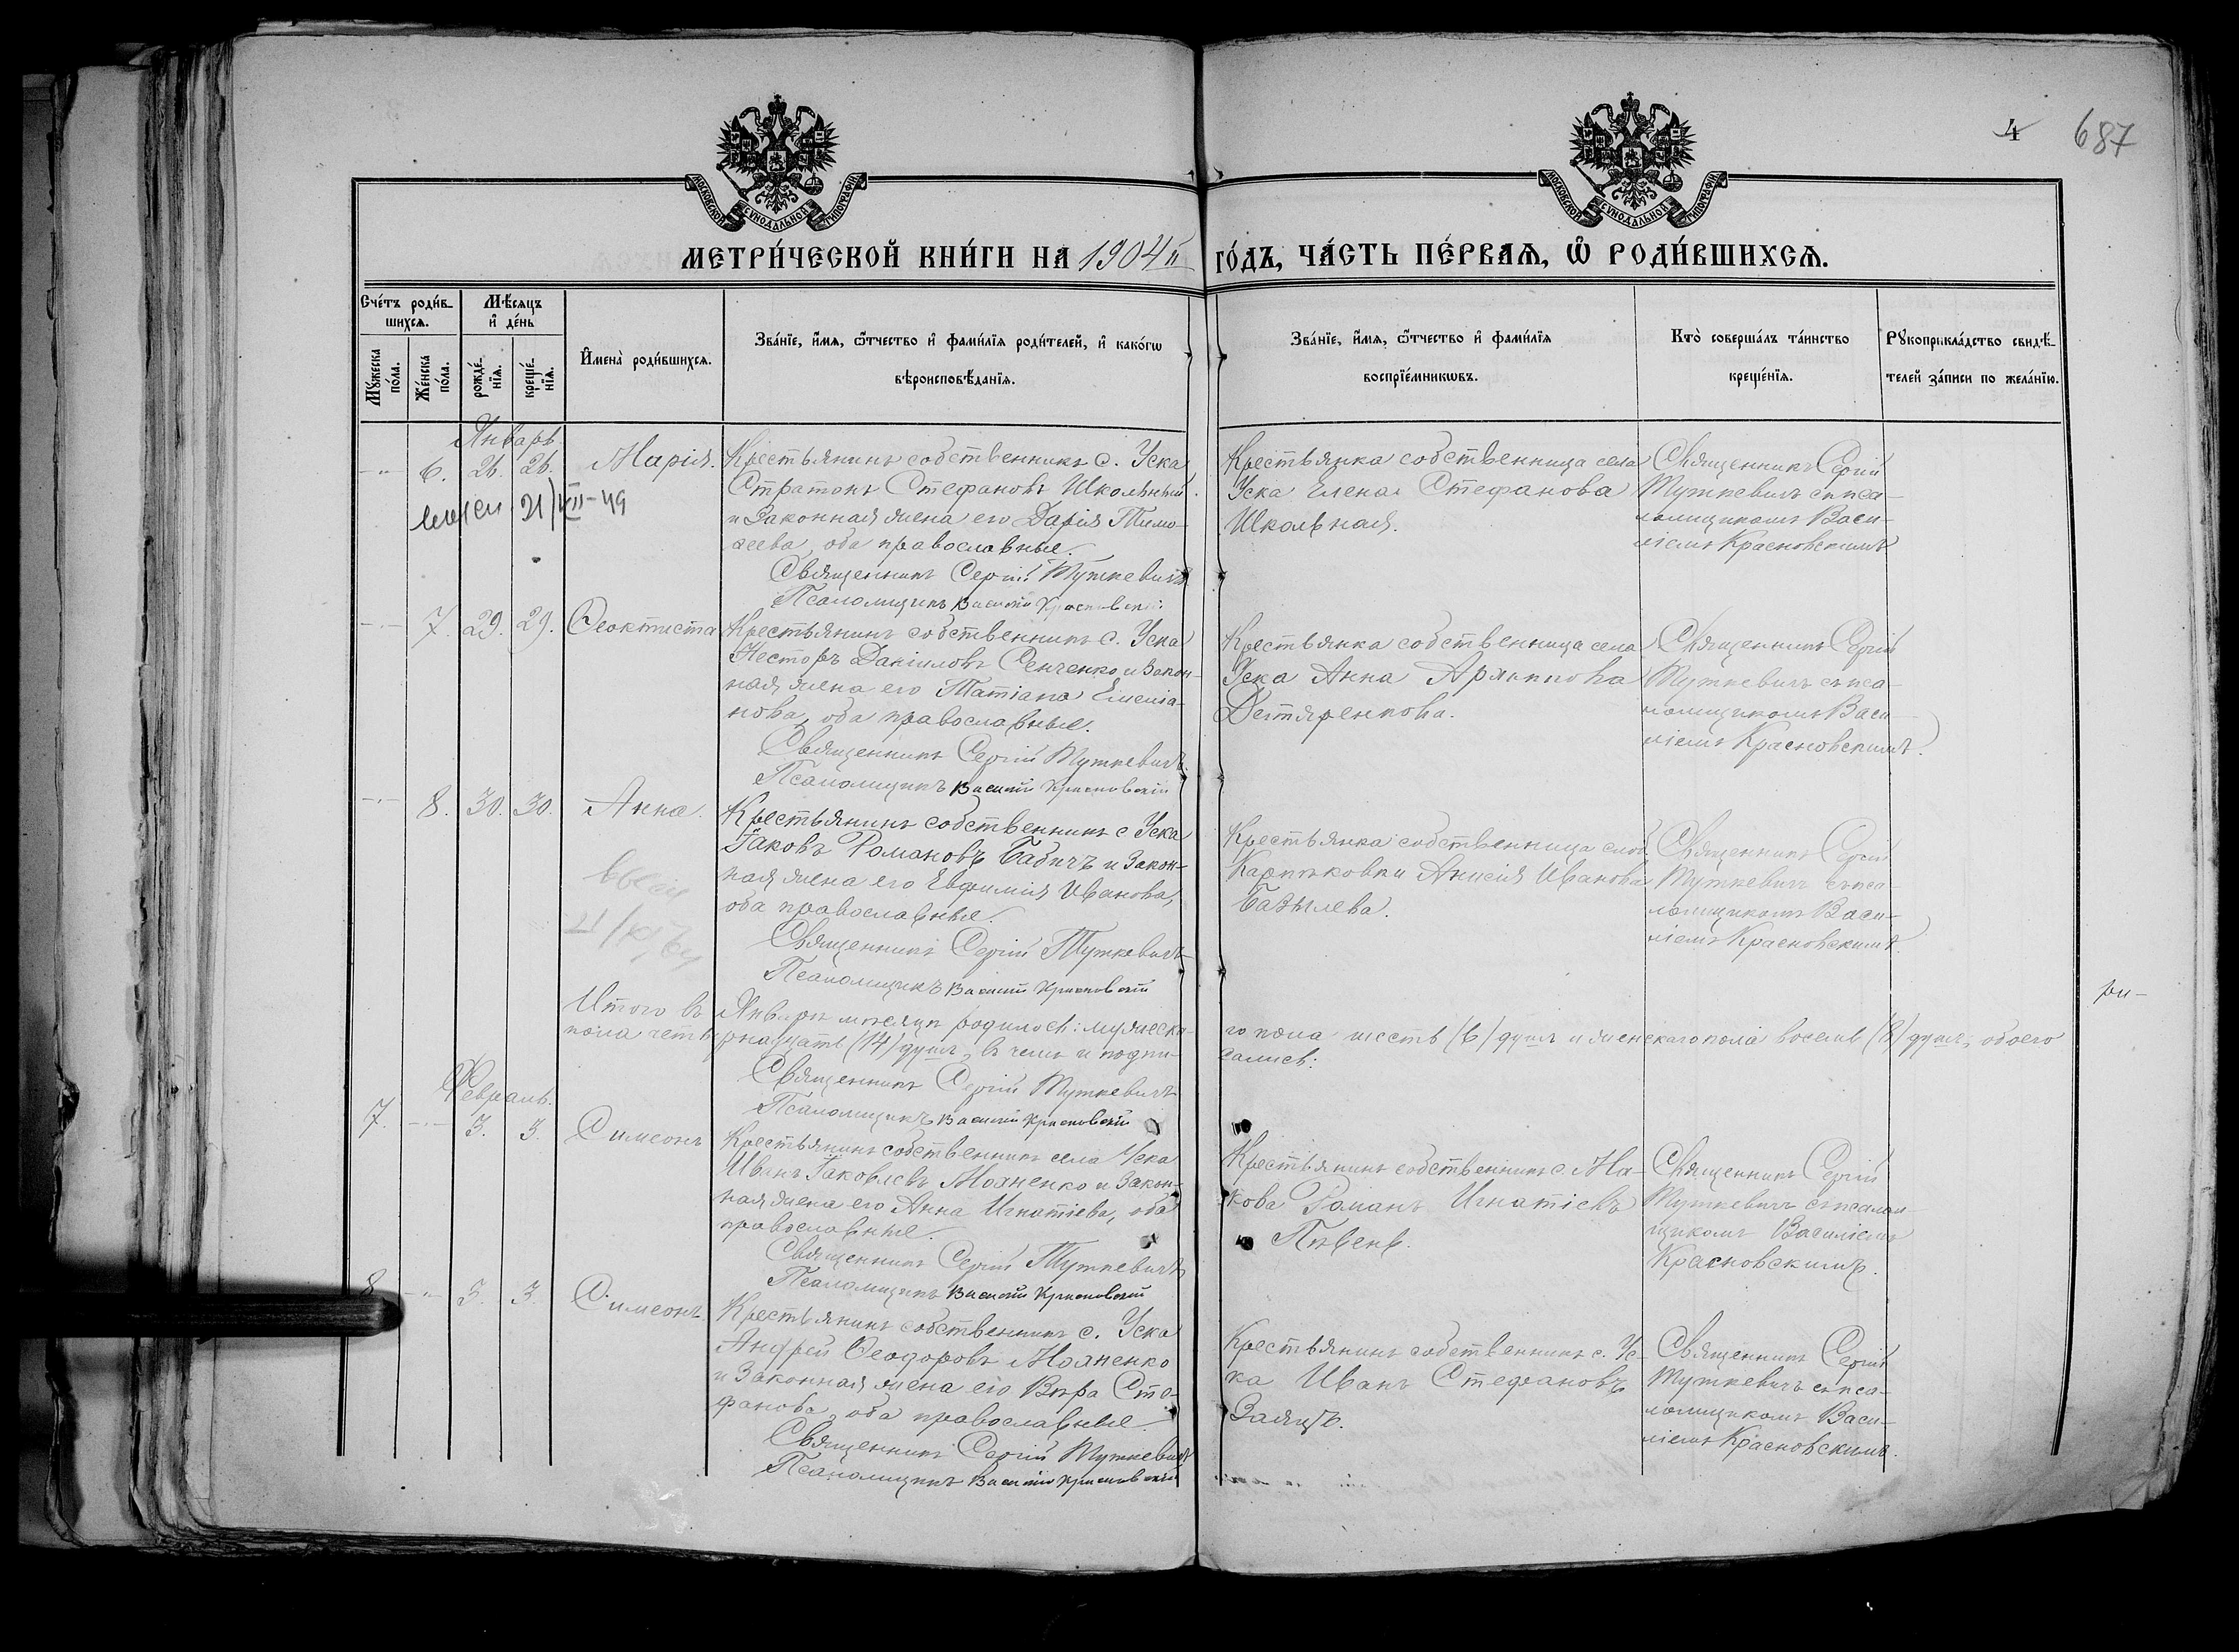 4 687
МОСКОВСКОЙ СѴНОДАЛЬНОЙ ТИПОГРАФІИ
МОСКОВСКОЙ СѴНОДАЛЬНОЙ ТИПОГРАФІИ
МЕТРИ́ЧЕСКОЙ КНИ́ГИ НА 1904й ГО́ДЪ, ЧА́СТЬ ПЕ́РВАѦ, Ѡ҆ РОДИ́ВШИХСѦ.
Сче́тъ роди́в-
шихсѧ.
Мѣ́сяцъ
и҆ де́нь
Мꙋ́жеска
по́ла.
Же́нска
по́ла.
рожде́-
нїѧ.
креще́-
нїѧ.
И҆мена̀ роди́вшихсѧ.
Зва́нїе, и҆́мѧ, ѻ҆́тчество и҆ фами́лїѧ роди́телей, и҆ како́гѡ
вѣроисповѣ́данїѧ.
Зва́нїе, и҆́мѧ, ѻ҆́тчество и҆ фами́лїѧ
воспрїе́мникѡвъ.
Кто̀ соверша́лъ та́инство
креще́нїѧ.
Рꙋкоприкла́дство свидѣ́-
телей за́писи по жела́нїю.
Январь
6. 26. 26. Марія.
Крестьянинъ собственникъ с. Уска
Стратонъ Стефановъ Школьный
и законная жена его Дарія Тимо-
ѳеева, оба православные.
Священникъ Сергій Туткевичъ
Псаломщикъ Василій Красновскій
Крестьянка собственница села
Уска Елена Стефанова
Школьная.
Священникъ Сергій
Туткевичъ съ пса-
ломщикомъ Васи-
ліемъ Красновскимъ
21/VII-49
7. 29. 29. Ѳеоктиста
Крестьянинъ собственникъ с. Уска
Несторъ Даніиловъ Сенченко и закон-
ная жена его Татіана Емелiа-
нова, оба православные.
Священникъ Сергій Туткевичъ.
Псаломщикъ Василій Красновскій
Крестьянка собственница села
Уска Анна Архиппова
Дегтяренкова.
Священникъ Сергій
Туткевичъ съ пса-
ломщикомъ Васи-
ліемъ Красновскимъ.
8. 30. 30. Анна.
Крестьянинъ собственникъ с Уска
Іаковъ Романовъ Бабичъ и закон-
ная жена его Евфимія Иванова,
оба православные.
Священникъ Сергій Туткевичъ
Псаломщикъ Василій Красновскій
Крестьянка собственница слоб
Анисія Иванова
Базылева.
Священникъ Сергій
Туткевичъ съ пса-
ломщикомъ Васи-
ліемъ Красновскимъ
Итого въ Январѣ мѣсяцѣ родилось: мужеска-
го пола шесть (6) душъ и женскаго пола восемь (8) душъ, обоего
пола четырнадцать (14) душъ, въ чемъ и подпи-
салисъ:
Священникъ Сергій Туткевичъ
Псаломщикъ Василій Красновскій
Февраль.
7. 3. 3. Симеонъ
Крестьянинъ собственникъ села Уска
Иванъ Іаковлевъ Мохненко и закон-
ная жена его Анна Игнатіева, оба
православные.
Священникъ Сергій Туткевичъ
Псаломщикъ Василій Красновскій
Крестьянинъ собственникъ с. Ма-
кова Романъ Игнатіевъ
Пѣвень.
Священникъ Сергій
Туткевичъ съ псалом-
щикомъ Василіемъ
Красновскимъ.
8 3. 3. Симеонъ.
Крестьянинъ собственникъ с. Уска
Андрей Ѳеодоровъ Мохненко
и законная жена его Вѣра Сте-
фанова, оба православные.
Священникъ Сергій Туткевичъ
Псаломщикъ Василій Красновскій
Крестьянинъ собственникъ с. Ус-
ка Иванъ Стефановъ
Заяцъ.
Священникъ Сергій
Туткевичъ съ пса-
ломщикомъ Васи-
ліемъ Красновскимъ.